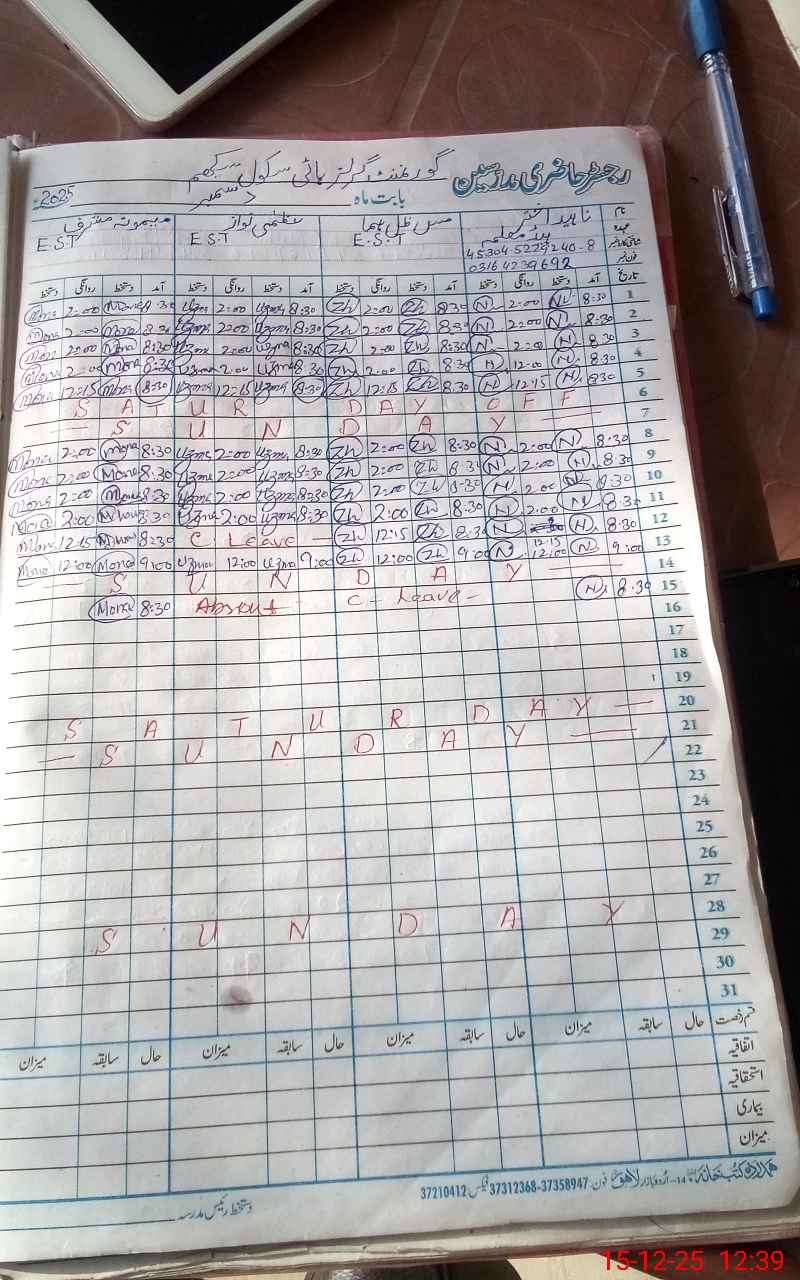 رجسٹر حاضری مدرسین گورنمنٹ گرلز ہائی سکول سکھم
بابت ماہ دسمبر 2025
نام ناہید اختر مس ظل ہما عظمیٰ نواز میمونہ مشرف
عہدہ ہیڈ معلمہ E.S.T E.S.T E.S.T
شناختی کارڈ نمبر 45304-5229240-8
فون نمبر 03164239692
تاریخ آمد دستخط روانگی دستخط آمد دستخط روانگی دستخط آمد دستخط روانگی دستخط آمد دستخط روانگی دستخط
1 8:30 N 2:00 N 8:30 Zh 2:00 Zh 8:30 Uzma 2:00 Uzma 8:30 Mona 2:00 Mona
2 8:30 N 2:00 N 8:30 Zh 2:00 Zh 8:30 Uzma 2:00 Uzma 8:30 Mona 2:00 Mona
3 8:30 N 2:00 N 8:30 Zh 2:00 Zh 8:30 Uzma 2:00 Uzma 8:30 Mona 2:00 Mona
4 8:30 N 12:00 N 8:30 Zh 2:00 Zh 8:30 Uzma 2:00 Uzma 8:30 Mona 2:00 Mona
5 8:30 N 12:15 N 8:30 Zh 12:15 Zh 8:30 Uzma 12:15 Uzma 8:30 Mona 12:15 Mona
6 SATURDAY OFF
7 — SUNDAY —
8 8:30 N 2:00 N 8:30 Zh 2:00 Zh 8:30 Uzma 2:00 Uzma 8:30 Mona 2:00 Mona
9 8:30 N 2:00 N 8:30 Zh 2:00 Zh 8:30 Uzma 2:00 Uzma 8:30 Mona 2:00 Mona
10 8:30 N 2:00 N 8:30 Zh 2:00 Zh 8:30 Uzma 2:00 Uzma 8:30 Mona 2:00 Mona
11 8:30 N 2:00 N 8:30 Zh 2:00 Zh 8:30 Uzma 2:00 Uzma 8:30 Mona 2:00 Mona
12 8:30 N 12:15 N 8:30 Zh 12:15 Zh C. Leave — 8:30 Mona 12:15 Mona
13 9:00 N 12:00 N 9:00 Zh 12:00 Zh 9:00 Uzma 12:00 Uzma 9:00 Mona 12:00 Mona
14 — SUNDAY —
15 8:30 N C - Leave - Absent - 8:30 Mona
16
17
18
19
20 SATURDAY —
21 — SUNDAY —
22
23
24
25
26
27
28 SUNDAY
29
30
31
قسم رخصت حال سابقہ میزان حال سابقہ میزان حال سابقہ میزان حال سابقہ میزان
اتفاقیہ
استحقاقیہ
بیماری
میزان
ہمدرد کتب خانہ 14-اردو بازار لاہور فون: 37358947-37312368 فیکس 37210412
دستخط رئیس مدرسہ
15-12-25 12:39